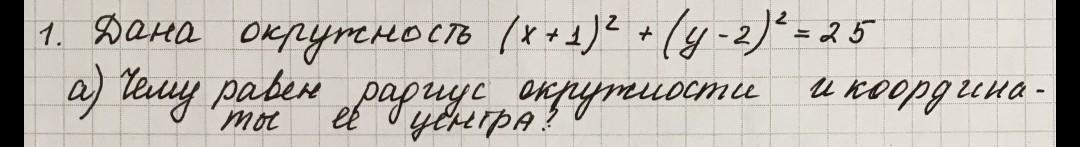 1. Дана окружность (x+1)² + (y-2)² = 25
а) Чему равен радиус окружности и координа-
ты её центра?